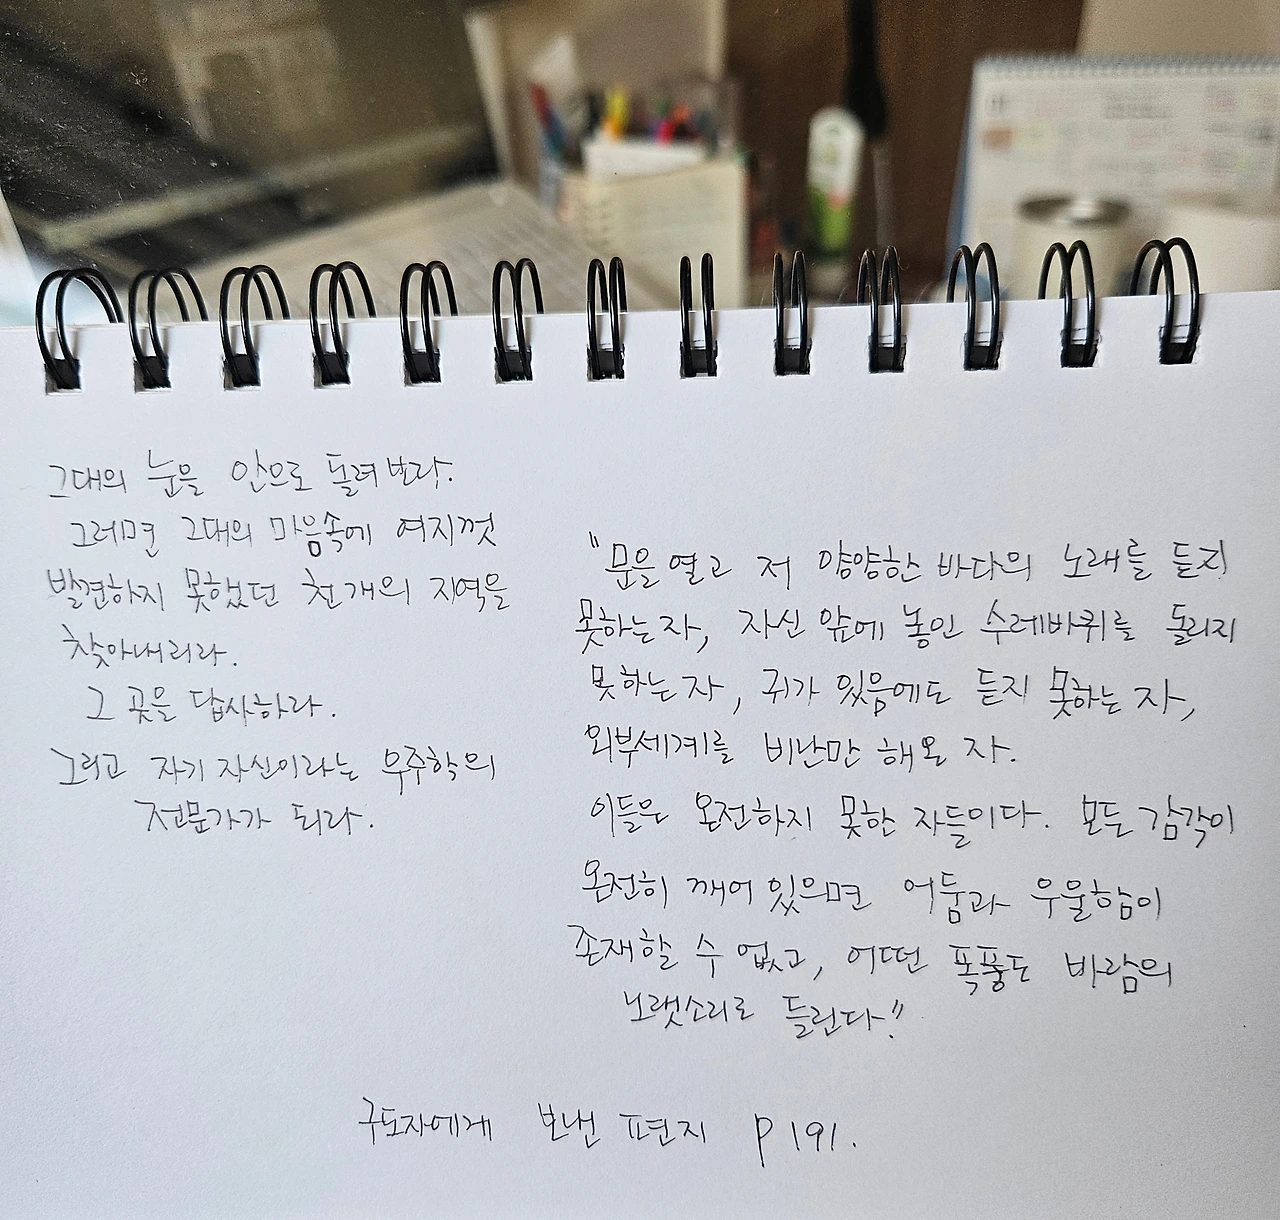 그대의 눈을 안으로 돌려보라.
그러면 그대의 마음속에 여지껏
발견하지 못했던 천개의 지역을
찾아내리라.
그 곳을 답사하라.
그리고 자기 자신이라는 우주학의
전문가가 되라.
"문을 열고 저 양양한 바다의 노래를 듣지
못하는 자, 자신 앞에 놓인 수레바퀴를 돌리지
못하는 자, 귀가 있음에도 듣지 못하는 자,
외부세계를 비난만 해온 자.
이들은 온전하지 못한 자들이다. 모든 감각이
온전히 깨어 있으면 어둠과 우울함이
존재할 수 없고, 어떤 폭풍도 바람의
노랫소리로 들린다."
구도자에게 보낸 편지 p 191.